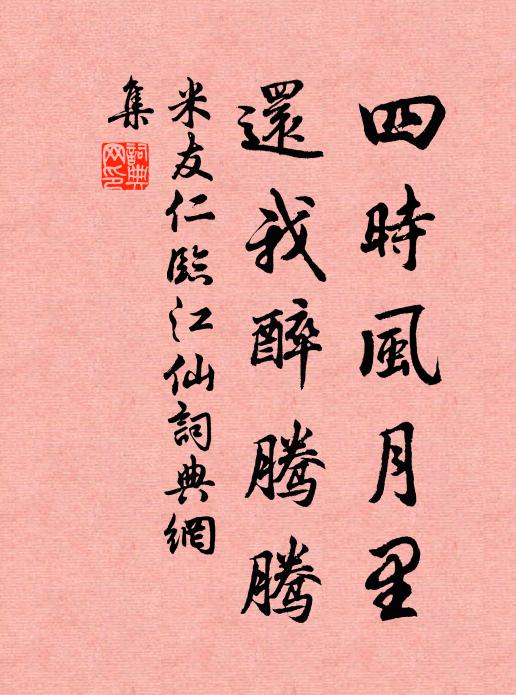 四時風月里
還我醉騰騰
米友仁臨江仙詞典網
集
詞典網印